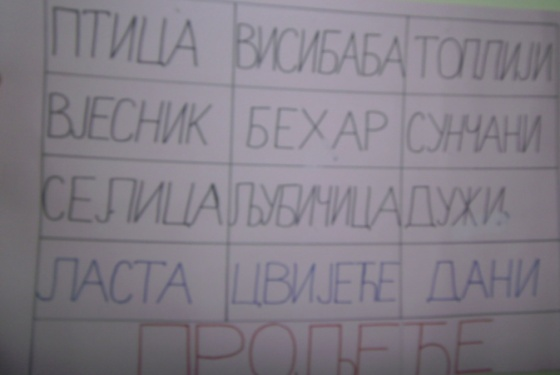 ПТИЦА ВИСИБАБА ТОПЛИЈИ
ВЈЕСНИК БЕХАР СУНЧАНИ
СЕЛИЦА ЉУБИЧИЦА ДУЖИ
ЛАСТА ЦВИЈЕЋЕ ДАНИ
ПРОЉЕЋЕ